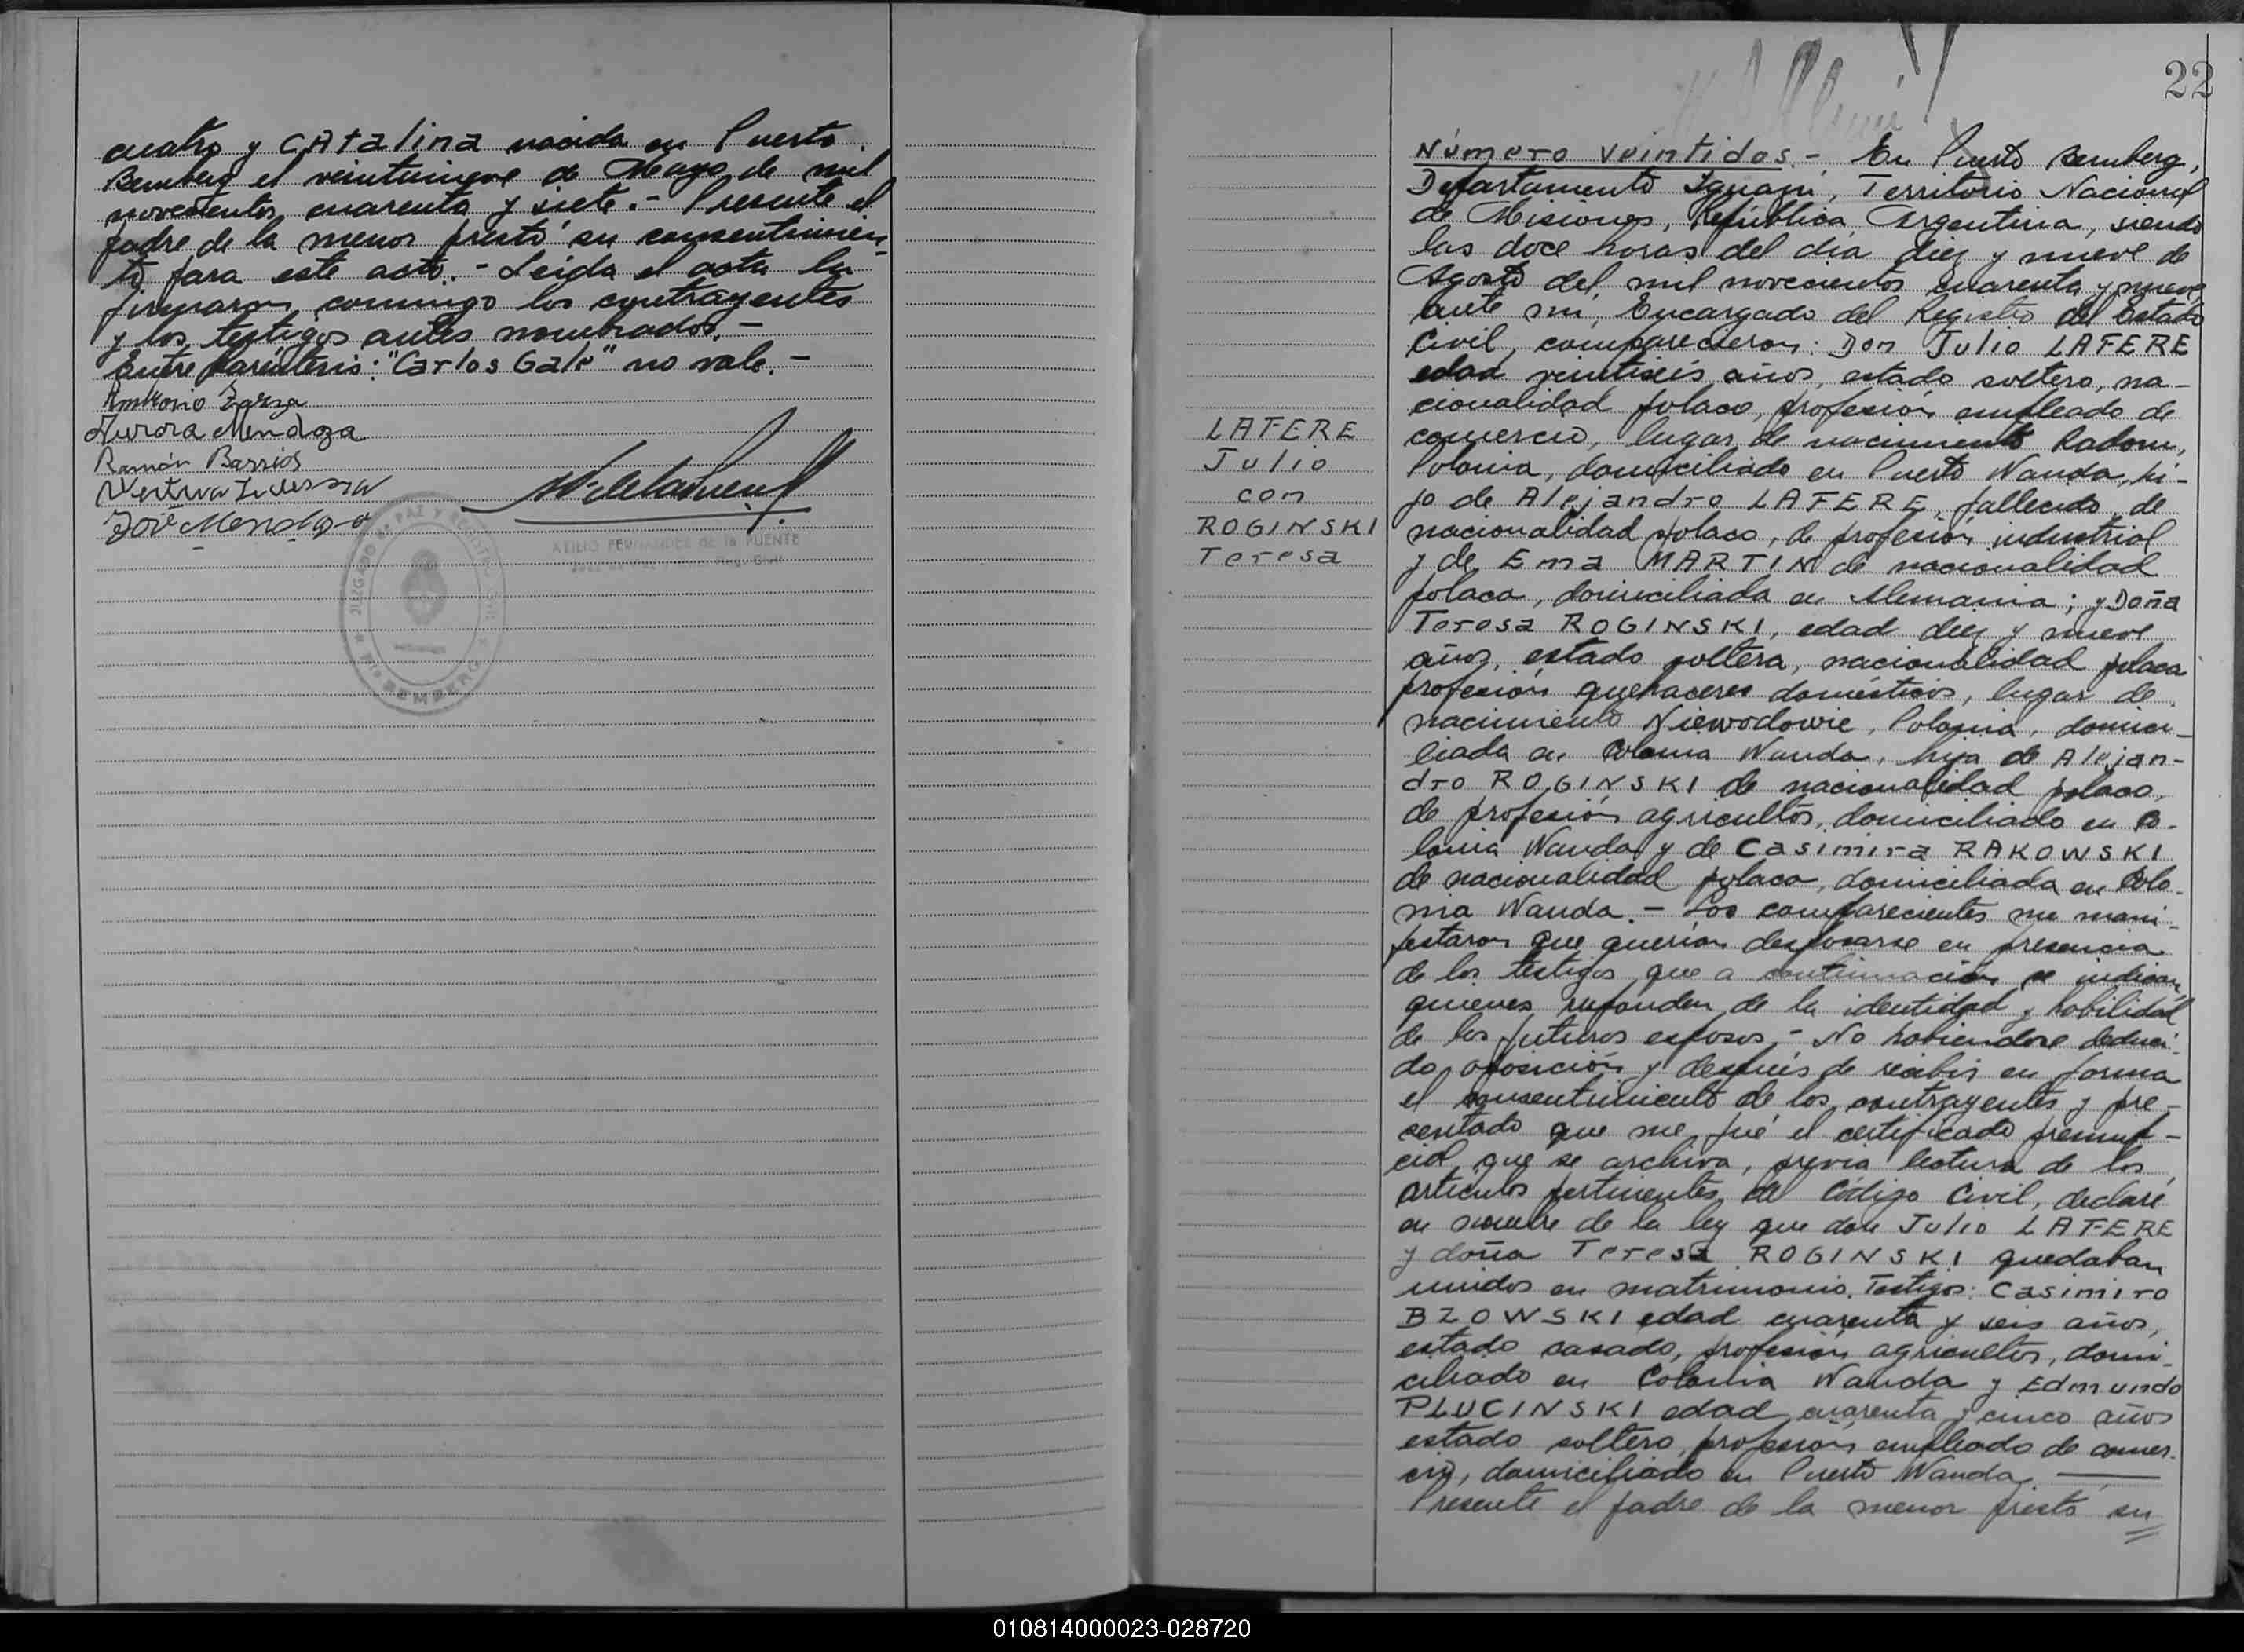 cuatro y CATalina nacida en Puerto
Bemberg el veintinueve de Mayo de mil
novecientos cuarenta y siete.- Presente el
padre de la menor prestó su consentimien-
to para este acto.- Leida el acta la
firmaron conmigo los contrayentes
y los testigos antes nombrados.-
Entre paréntesis: "Carlos Gale" no vale.-
Ambrosio Zarza
Aurora Mendoza
Ramón Barrios
José Mendoza
JUZGADO DE PAZ Y REGISTRO CIVIL
Pto BEMBERG
ATILIO FERNANDEZ DE la PUENTE
22
LAFERE
Julio
con
ROGINSKI
Teresa
Número veintidos.- En Puerto Bemberg,
Departamento Iguazú, Territorio Nacional
de Misiones, República Argentina, siendo
las doce horas del día diez y nueve de
Agosto del mil novecientos cuarenta y nueve
ante mi, Encargado del Registro del Estado
Civil, comparecieron: Don Julio LAFERE
edad veintiséis años, estado soltero, na-
cionalidad polaco, profesión empleado de
comercio, lugar de nacimiento Radom,
Polonia, domiciliado en Puerto Wanda, hi-
jo de Alejandro LAFERE, fallecido, de
nacionalidad polaco, de profesión industrial
y de Ema MARTIN de nacionalidad
polaca, domiciliada en Alemania; y Doña
Teresa ROGINSKI, edad diez y nueve
años, estado soltera, nacionalidad polaca
profesión quehaceres domésticos, lugar de
nacimiento Niewodowie, Polonia, domici-
liada en Colonia Wanda, hija de Alejan-
dro ROGINSKI de nacionalidad polaco,
de profesión agricultor, domiciliado en Co-
lonia Wanda y de Casimira RAKOWSKI
de nacionalidad polaca, domiciliada en Colo-
nia Wanda.- Los comparecientes me mani-
festaron que querían desposarse en presencia
de los testigos que a continuación se indican,
quienes responden de la identidad y habilidad
de los futuros esposos.- No habiéndose deduci-
do oposición y después de recibir en forma
el consentimiento de los contrayentes y pre-
sentado que me fué el certificado prenup-
cial que se archiva, previa lectura de los
artículos pertinentes del Código Civil, declaré
en nombre de la ley que don Julio LAFERE
y doña Teresa ROGINSKI quedaban
unidos en matrimonio. Testigos: Casimiro
BZOWSKI edad cuarenta y seis años,
estado casado, profesión agricultor, domi-
ciliado en Colonia Wanda y Edmundo
PLUCINSKI edad cuarenta y cinco años
estado soltero, profesión empleado de comer-
cio, domiciliado en Puerto Wanda.
Presente el padre de la menor prestó su
010814000023-028720